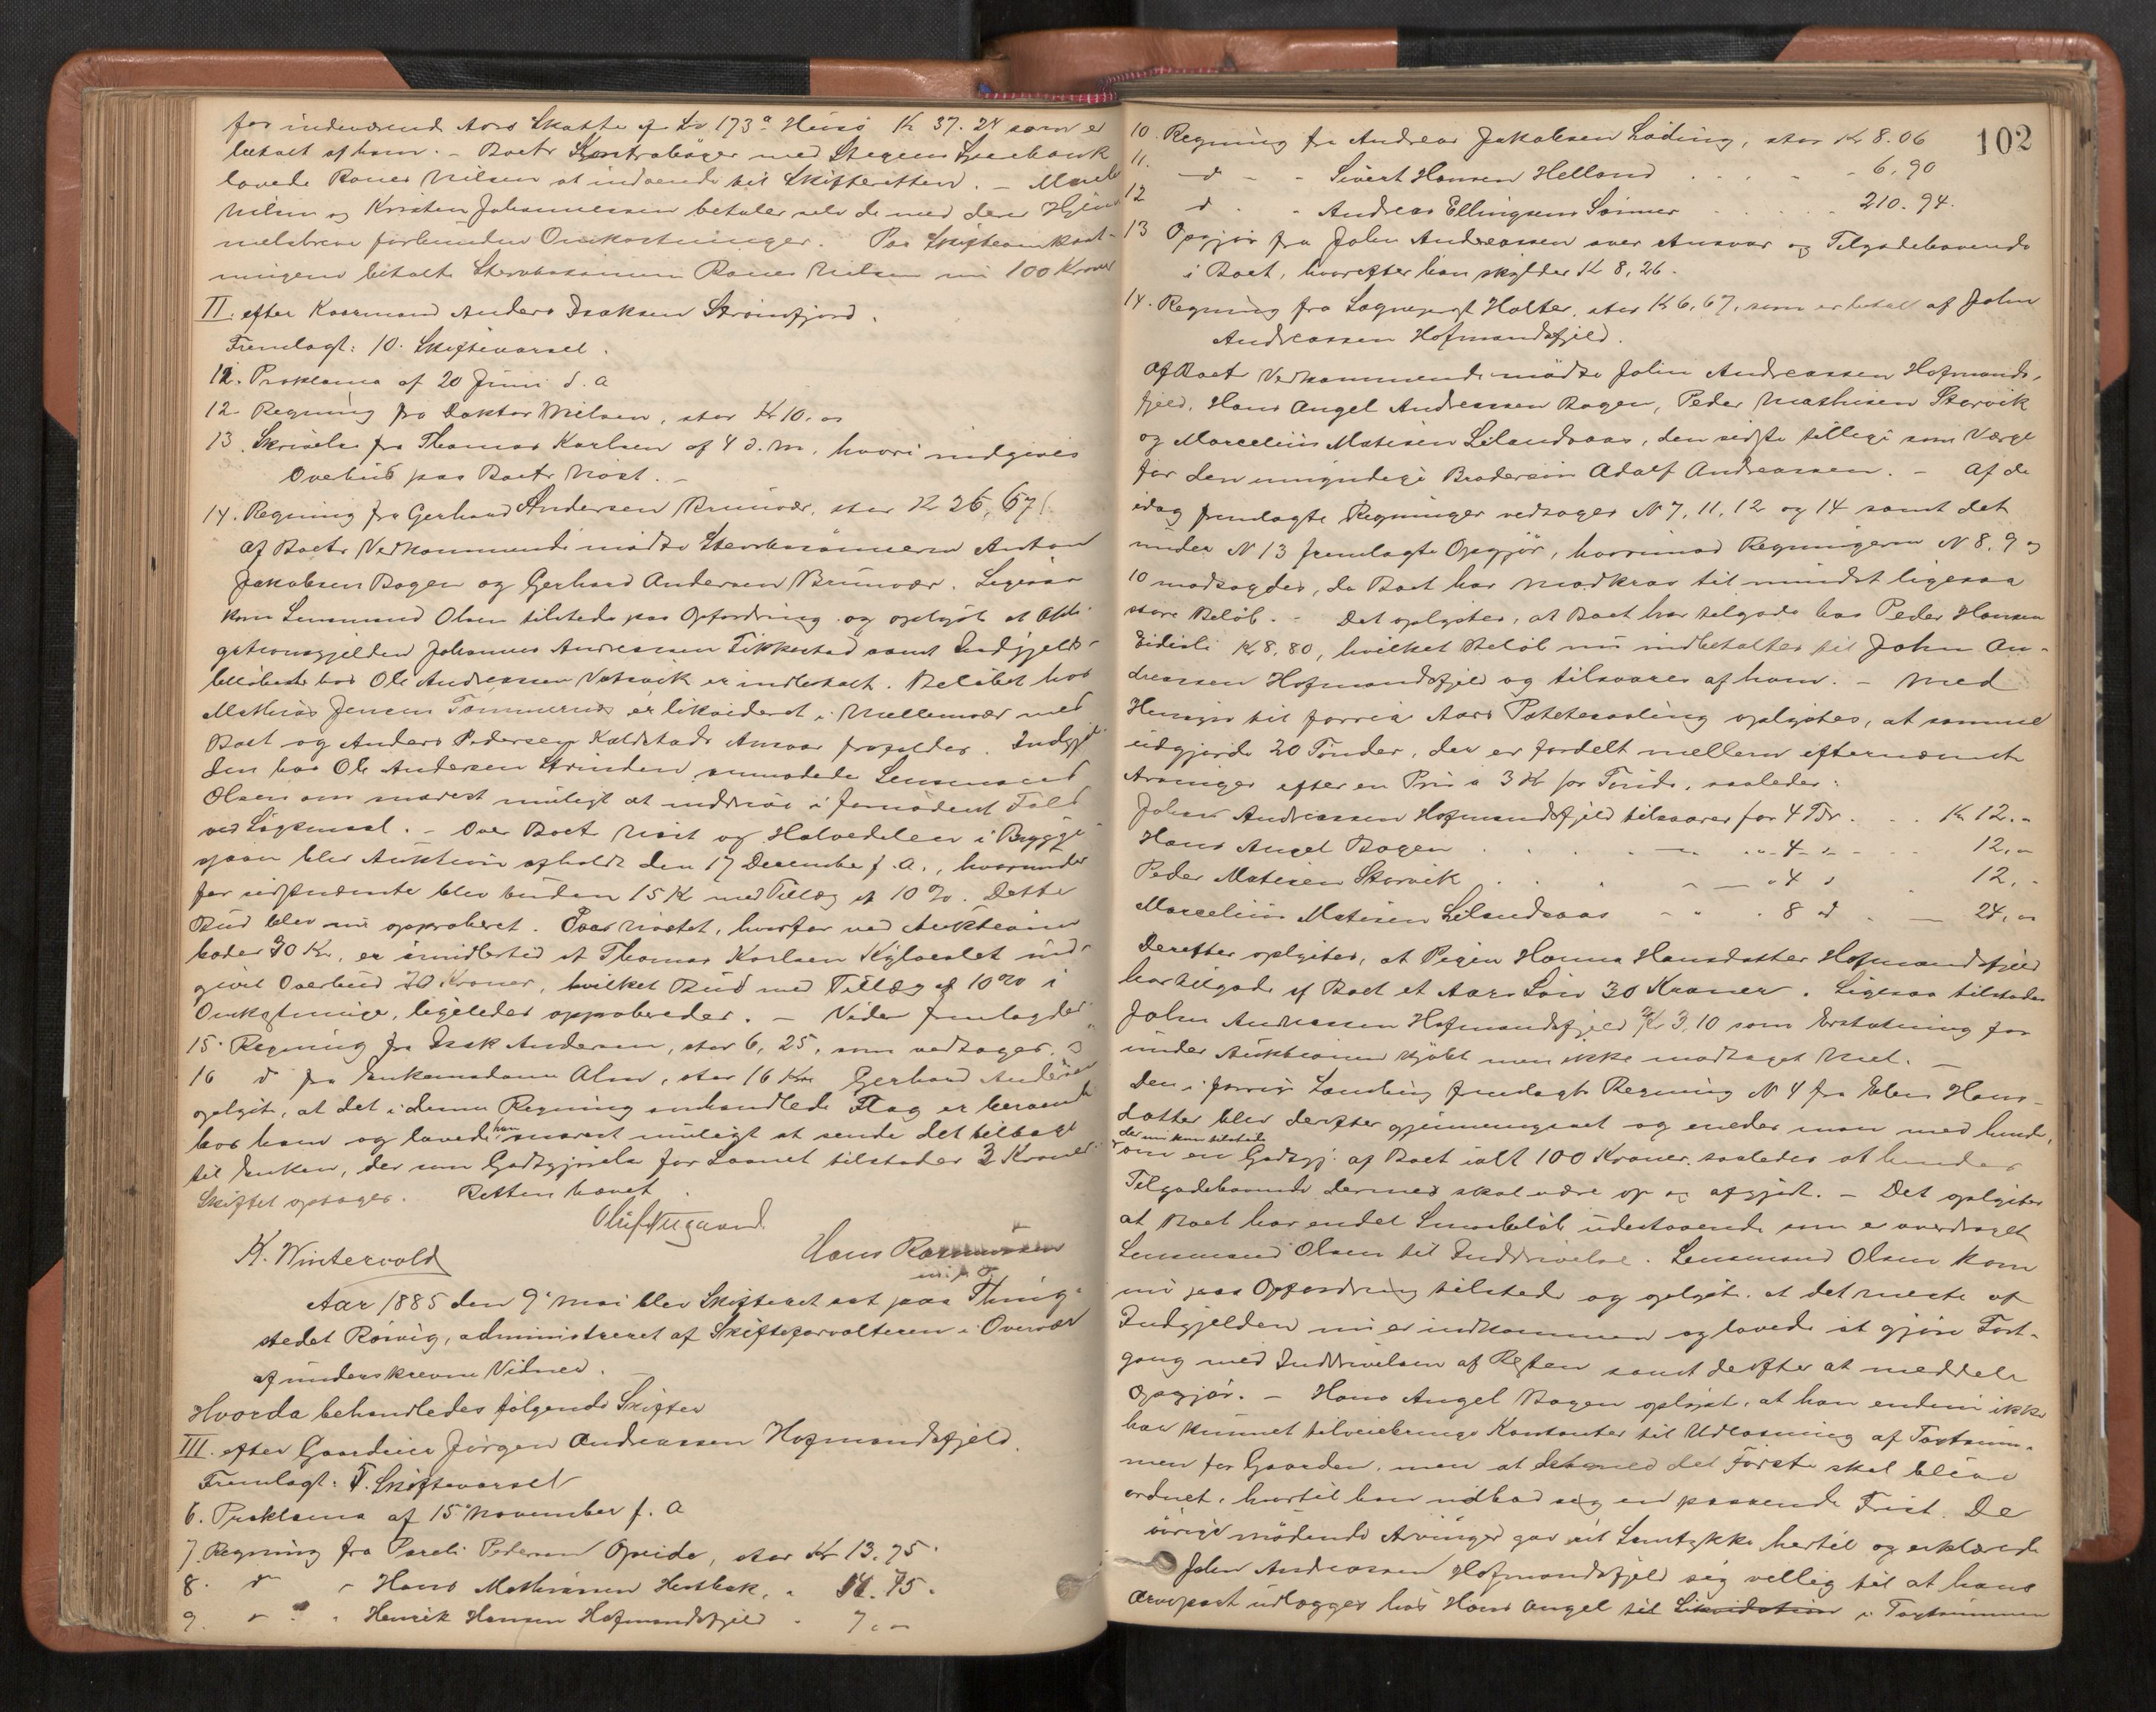 for indeværende Aars Skatte af Lr 173a Husö Kr 37.24 som er
betalt af ham. - Boets Kontrabøger med Stegens Sparebank
lovede Roner Nilsen at indsende til Skifteretten. -
Nilsen og Kirsten Johannessen betaler selv de med deres Hjem-
melsbreve forbundne Omkostninger. Paa Skifteomkost-
ningene betalte Stervbosönnen Roner Nilsen nu 100 Kroner
II. efter Kaarmand Anders Isaksen Strömfjord.
Fremlagt: 10. Skiftevarsel.
11. Proklama af 20 Juni d. A
12. Regning fra Doktor Nielsen, stor Kr 10. "
13. Skrivelse fra Thomas Karlsen af 4 d. M., hvori indgives
Overbud paa Boets Nost. -
14. Regning fra Gerhard Andersen Brunvær, stor Kr 26,67
Af Boets Vedkommende mødte Stervbosönnerne Anton
Jakobsen Bogen og Gerhard Andersen Brunvær. Ligesaa
kom Lensmand Olsen tilstede paa Opfordring og oplyste at Obli-
gationsgjelden Johannes Andreassen Tikkestad samt Indgjelds-
beløbet hos Ole Andreassen Vatsvik er indbetalt. Beløbet hos
Mathias Jensen Tømmernes er likvideret i Mellemvær med
Boet og Anders Pedersen Kaldstads Ansvar frafaldes. Indgjel-
den hos Ole Andersen Strinden anmodede Lensmand
Olsen om snarest muligt at inddrive i fornødent Fald
ved Søgsmaal. - Over Boets Nöst og Halvedelen i Brygge-
sjaaen blev Auktion afholdt den 17 December f. A., hvorunder
for sidstnævnte blev buden 15 Kr med Tillæg af 10 %. Dette
Bud blev nu approberet. Paa Nöstet, hvorfor ved Auktionen
bödes 30 Kr, er imidlertid af Thomas Karlsen ind-
givet Overbud 70 Kroner, hvilket Bud med Tillæg af 10 % i
Omkostninger, ligeledes approberedes. - Videre fremlagdes
15. Regning fra Isak Andersen, stor 6,25, som vedtages, og
16 do fra Enkemadam Alm, stor 16 Kr. Gerhard Andersen
oplyste, at det i denne Regning omhandlede Flag er beroende
hos ham og lovede han snarest muligt at sende det tilbage
til Enken, der som Godtgjørelse for Laanet tilstodes 3 Kroner.
Skiftet optages. Retten hævet.
Oluf Nygaard
K. Wintervold Hans Rasmussen
m. p. P.
Aar 1885 den 9 Mai blev Skifteret sat paa Thing-
stedet Rösvig, administreret af Skifteforvalteren i Overvær
af underskrevne Vidner.
Hvorda behandledes følgende Skifter
III. efter Gaardeier Jörgen Andreassen Hofmandsfjeld.
Fremlagt: 5. Skiftevarsel
6. Proklama af 15 November f. A
7. Regning fra Pareli Pedersen Opeide, stor Kr 13.75.
8. do " Hans Mathiassen Hestbak, " 14.45.
9. " " " Henrik Hansen Hofmandsfjeld " 7. "
102
10. Regning fra Andreas Jakobsen Løding, stor Kr 8.06
11. do - - Sivert Hansen Helland . . . . - 6,90
12 do . - Andreas Ellingsens Sönner . . . . . 210.94.
13 Opgjör fra John Andreassen over Ansvar og Tilgodehavende
i Boet, hvorefter han skylder Kr 8,26.
14. Regning fra Sogneprest Holter, stor Kr 6,67, som er betalt af John
Andreassen Hofmandsfjeld.
Af Boets Vedkommende mødte John Andreassen Hofmands-
fjeld, Hans Angel Andreassen Bogen, Peder Mathisen Storvik
og Marcelius Matisen Leilandsaas, den sidste tillige som Værge
for den umyndige Brodersön Adolf Andreassen. - Af de
idag fremlagte Regninger vedtages N 7, 11, 12 og 14 samt det
under N 13 fremlagte Opgjör, hvorimod Regningerne N 8, 9 og
10 modsagdes, da Boet har Modkrav til mindst ligesaa
store Beløb. - Det oplystes, at Boet har tilgode hos Peder Hansen
Eidisli Kr 8,80, hvilket Beløb nu indbetaltes til John An-
dreassen Hofmandsfjeld og tilsvares af ham. - Med
Hensyn til forrige Aars Potetesavling oplystes, at samme
udgjorde 20 Tönder, der er fordelt mellem efternævnte
Arvinger efter en Pris a 3 Kr pr Tönde, saaledes:
Johan Andreassen Hofmandsfjeld tilsvarer for 4 Tdr. . . Kr 12. "
Hans Angel Bogen . . . . - " - 4 - " - . . 12, "
Peder Matisen Storvik . . . - - " 4 " . 12, "
Marcelius Matisen Leilandsaas - " . 8 do . - 24, "
Derefter oplystes, at Pigen Hanna Hansdatter Hofmandsfjeld
har tilgode af Boet et Aars Lön 30 Kroner. Ligesaa tilstodes
John Andreassen Hofmandsfjeld Kr 3,10 som Erstatning for
under Auktionen kjöbt men ikke modtaget Mel. -
Den i forrige Samling fremlagte Regning N 4 fra Elen Hans-
datter blev derefter gjennemgaaet og enedes man med hende,
der nu kom tilstede
om en Godtgj. af Boet ialt 100 Kroner, saaledes at hendes
Tilgodehavende dermed skal være op og afgjort. - Det oplystes
at Boet har endel Smaabeløb udestaaende som er overdraget
Lensmand Olsen til Inddrivelse. Lensmand Olsen kom
nu paa Opfordring tilstede og oplyste at det meste af
Indgjelden nu er indkommen og lovede at gjøre Fort-
gang med Inddrivelsen af Resten samt derefter at meddele
Opgjör. - Hans Angel Bogen oplyste, at han endnu ikke
har kunnet tilveiebringe Kontanter til Udlösning af Taxtsum-
men for Gaarden, men at det med det Første skal blive
ordnet, hvortil han udbad sig en passende Frist. De
övrige mødende Arvinger gav sit Samtykke hertil og erklærede
John Andreassen Hofmandsfjeld sig villig til at hans
Arvepart udlægges hos Hans Angel til Likvidation i Taxtsummen